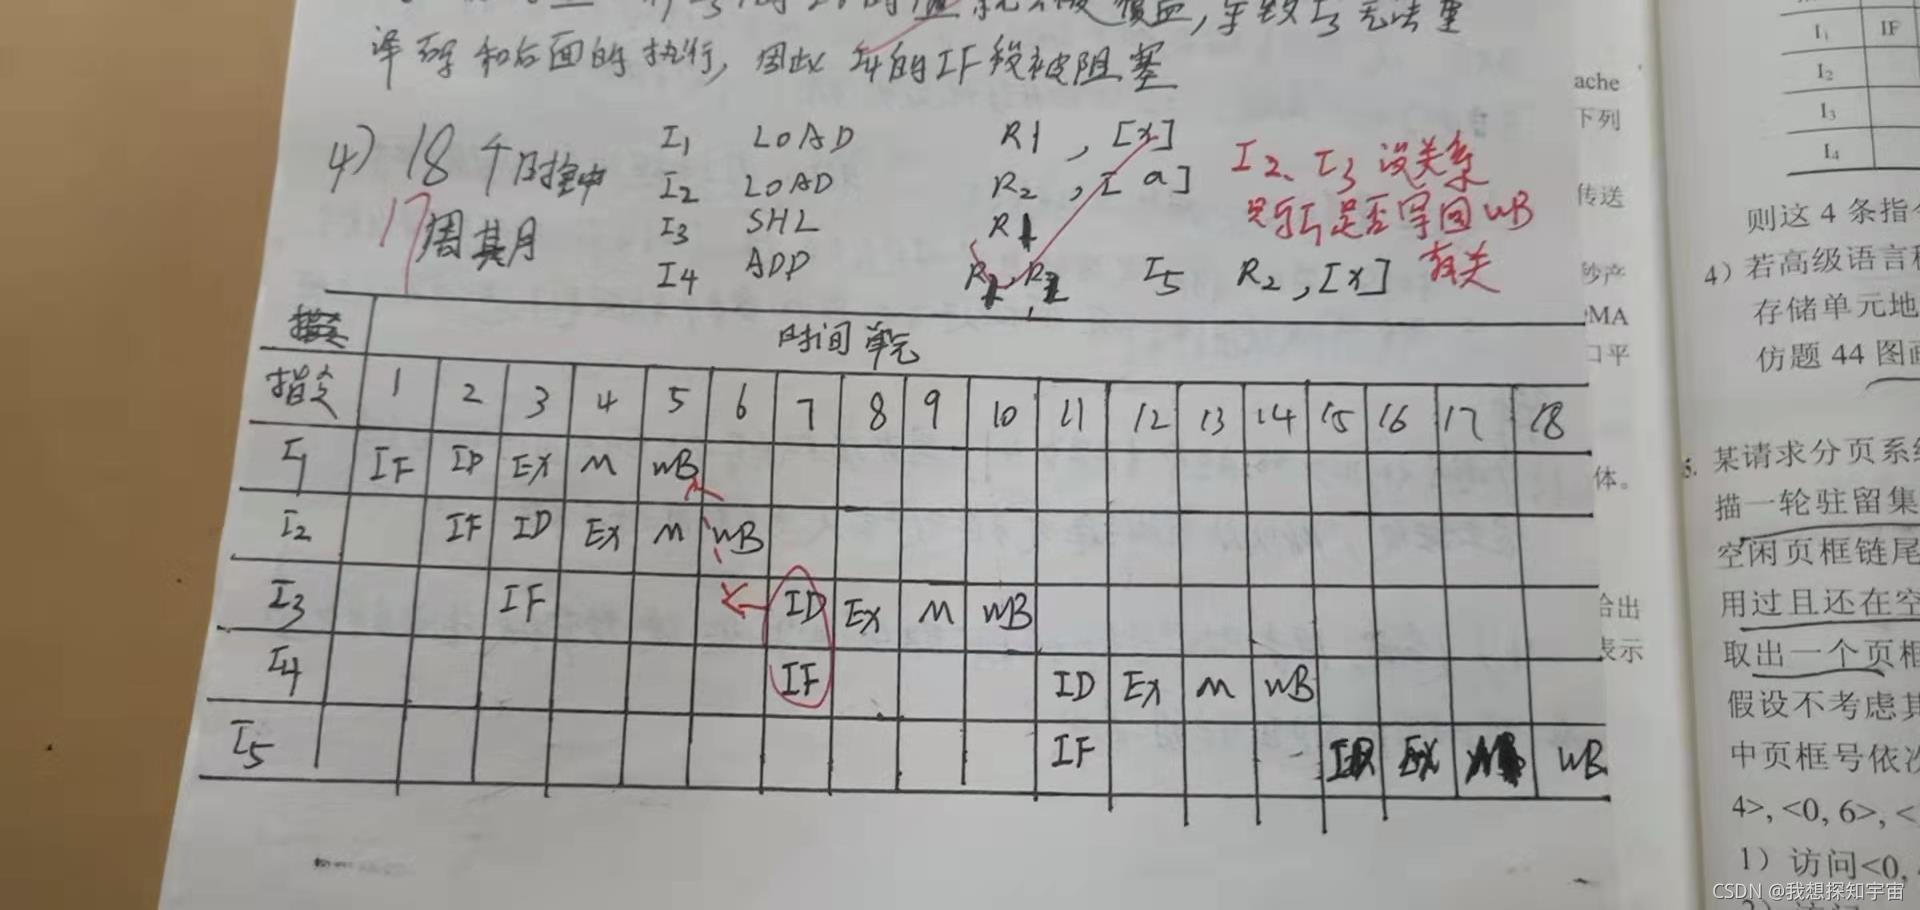 译码和后面的执行,因此 I4的IF段被阻塞
4) 18个时钟
17周期
I1 LOAD R1, [x]
I2 LOAD R2, [a]
I3 SHL R1
I4 ADD R1, R2
I5 R2, [x]
I2、I3没关系
只与I1是否写回WB
有关
指令 时间单元
1 2 3 4 5 6 7 8 9 10 11 12 13 14 15 16 17 18
I1 IF ID EX M WB
I2 IF ID EX M WB
I3 IF ID EX M WB
I4 IF ID EX M WB
I5 IF ID EX M WB
ache
下列
传送
秒产
MA
口平
体。
给出
表示
I1 IF
I2
I3
I4
则这4条指令
4) 若高级语言程
存储单元地
仿题44图画
某请求分页系统
描一轮驻留集
空闲页框链尾
用过且还在空
取出一个页框
假设不考虑其
中页框号依次
4>, <0, 6>, <
1) 访问<0,
CSDN @我想探知宇宙